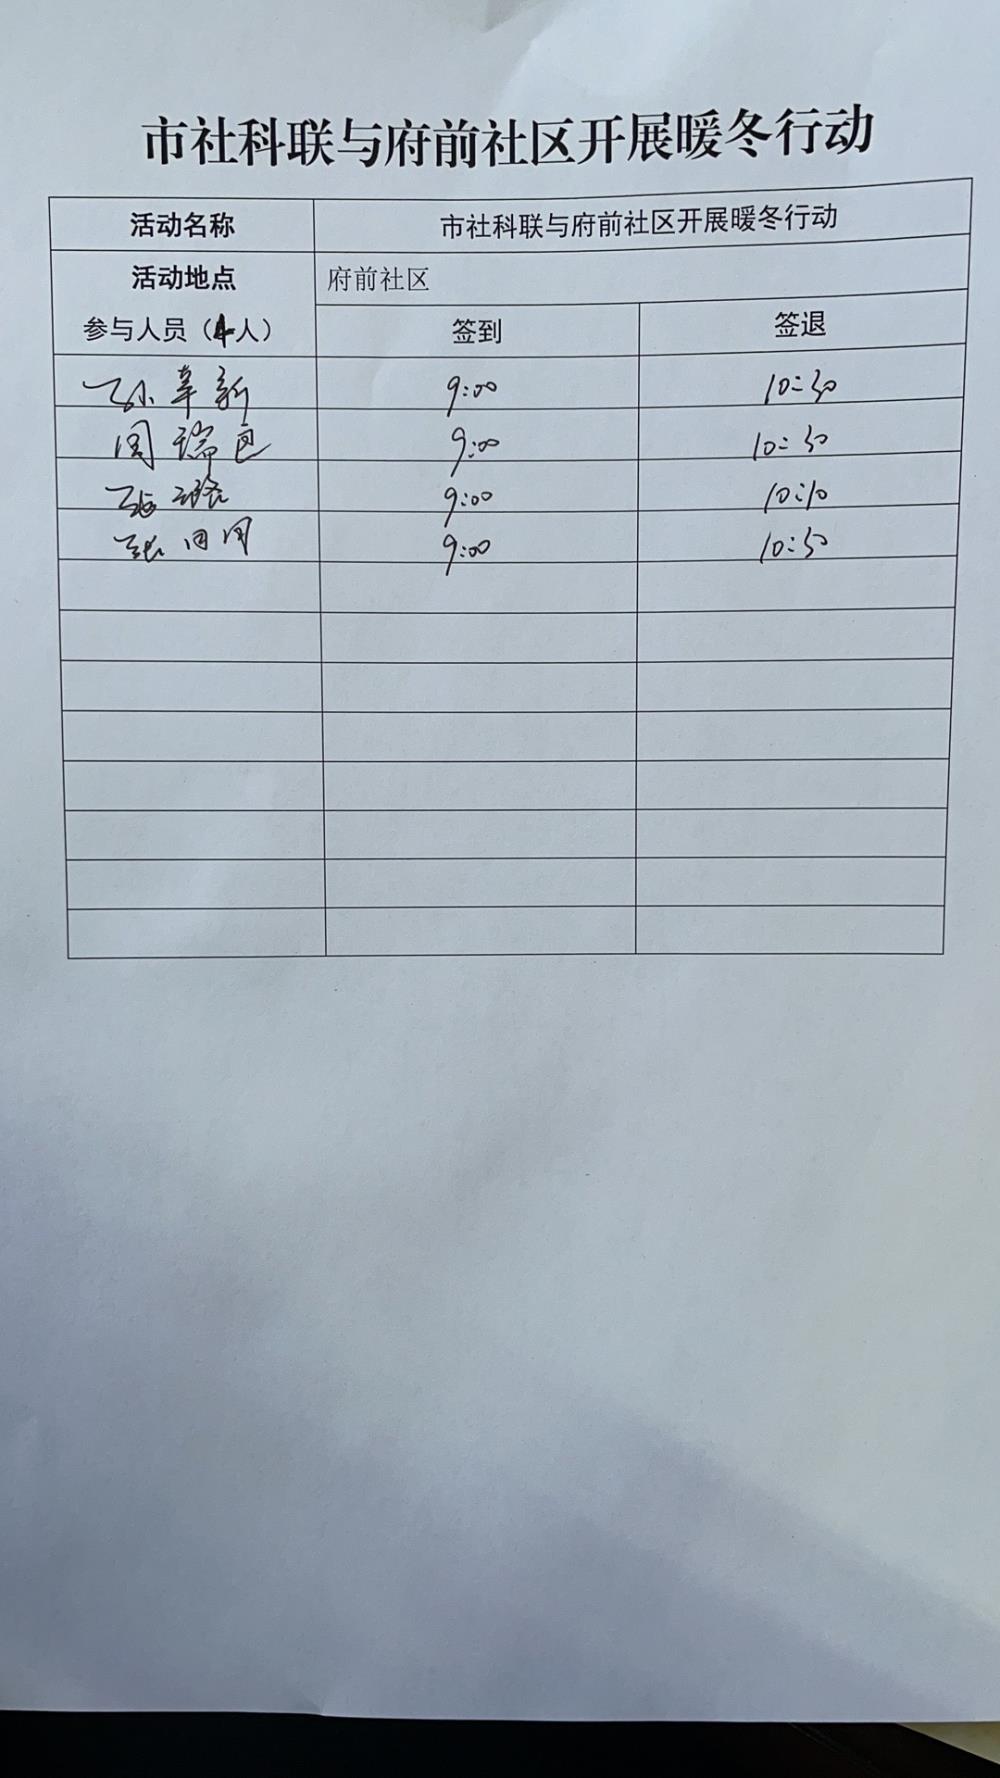 市社科联与府前社区开展暖冬行动
活动名称 市社科联与府前社区开展暖冬行动
活动地点 府前社区
参与人员（4人） 签到 签退
孙革新 9:00 10:30
周瑞 9:00 10:30
张璐 9:00
张同同 9:00 10:30